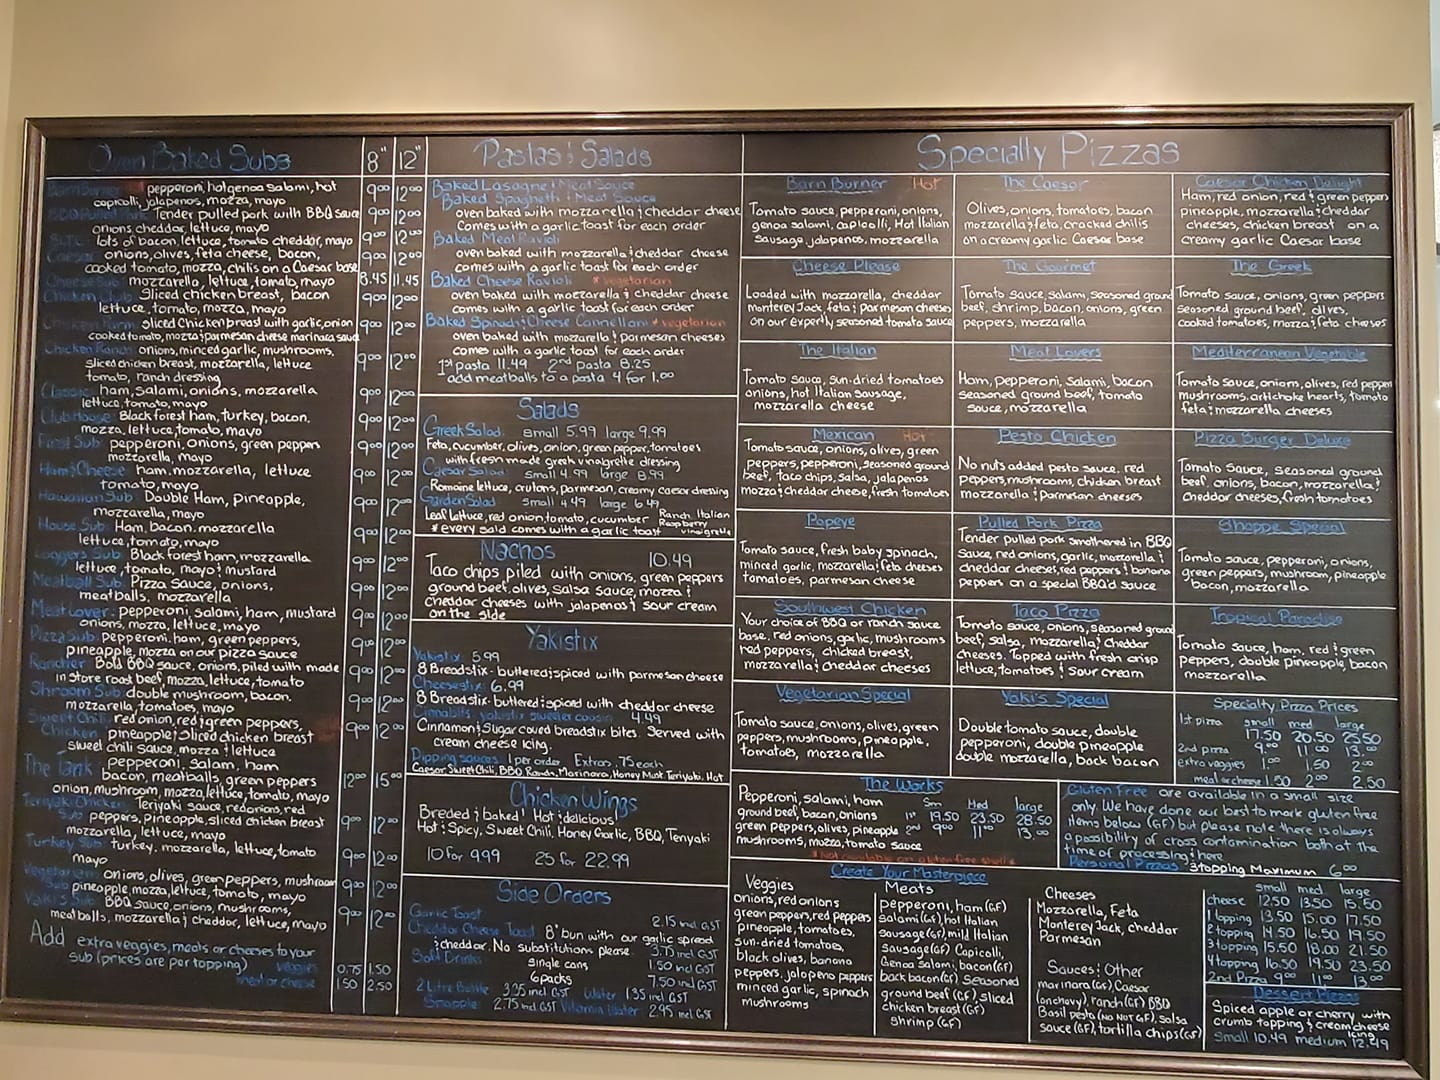 Oven Baked Subs 8" 12"
Barn Burner pepperoni, hot genoa salami, hot 9.00 12.00
capicolli, jalapenos, mozza, mayo
BBQ Pulled Pork Tender pulled pork with BBQ sauce 9.00 12.00
onions cheddar, lettuce, mayo
lots of bacon, lettuce, tomato cheddar, mayo 9.00 12.00
Caesar onions, olives, feta cheese, bacon, 9.00 12.00
cooked tomato, mozza, chilis on a Caesar base
Cheese Sub: mozzarella, lettuce, tomato, mayo 8.45 11.45
Chicken Club: Sliced chicken breast, bacon 9.00 12.00
lettuce, tomato, mozza, mayo
Chicken Parm: sliced chicken breast with garlic, onion 9.00 12.00
cooked tomato, mozza & parmesan cheese marinara sauce
Chicken Ranch: onions, minced garlic, mushrooms, 9.00 12.00
sliced chicken breast, mozzarella, lettuce
tomato, ranch dressing
Classic: ham, salami, onions, mozzarella 9.00 12.00
lettuce, tomato, mayo
Club House: Black forest ham, turkey, bacon, 9.00 12.00
mozza, lettuce, tomato, mayo
First Sub: pepperoni, onions, green peppers 9.00 12.00
mozzarella, mayo
Ham & Cheese: ham, mozzarella, lettuce 9.00 12.00
tomato, mayo
Hawaiian Sub: Double Ham, pineapple, 9.00 12.00
mozzarella, mayo
House Sub: Ham, bacon, mozzarella 9.00 12.00
lettuce, tomato, mayo
Loggers Sub: Black forest ham, mozzarella 9.00 12.00
lettuce, tomato, mayo & mustard
Meatball Sub: Pizza Sauce, onions, 9.00 12.00
meatballs, mozzarella
Meat Lover: pepperoni, salami, ham, mustard 9.00 12.00
onions, mozza, lettuce, mayo
Pizza Sub: pepperoni, ham, green peppers, 9.00 12.00
pineapple, mozza on our pizza sauce
Rancher: Bold BBQ sauce, onions, piled with made 9.00 12.00
in store roast beef, mozza, lettuce, tomato
Shroom Sub: double mushroom, bacon, 9.00 12.00
mozzarella, tomatoes, mayo
Sweet Chili red onion, red & green peppers, 9.00 12.00
Chicken pineapple & sliced chicken breast
sweet chili sauce, mozza & lettuce
The Tank: pepperoni, salami, ham 12.00 15.00
bacon, meatballs, green peppers
onion, mushroom, mozza, lettuce, tomato, mayo
Teriyaki Chicken: Teriyaki sauce, red onion, red 9.00 12.00
Sub peppers, pineapple, sliced chicken breast
mozzarella, lettuce, mayo
Turkey Sub: turkey, mozzarella, lettuce, tomato 9.00 12.00
mayo
Vegetarian onions, olives, green peppers, mushroom 9.00 12.00
Sub pineapple, mozza, lettuce, tomato, mayo
Yaki's Sub: BBQ sauce, onions, mushrooms, 9.00 12.00
meatballs, mozzarella & cheddar, lettuce, mayo
Add extra veggies, meats or cheeses to your
sub (prices are per topping) veggies 0.75 1.50
meat or cheese 1.50 2.50
Pastas & Salads
Baked Lasagne: Meat Sauce
Baked Spaghetti & Meat Sauce
oven baked with mozzarella & cheddar cheese
comes with a garlic toast for each order
Baked Meat Ravioli
oven baked with mozzarella & cheddar cheese
comes with a garlic toast for each order
Baked Cheese Ravioli * vegetarian
oven baked with mozzarella & cheddar cheese
comes with a garlic toast for each order
Baked Spinach & Cheese Cannelloni * vegetarian
oven baked with mozzarella & parmesan cheeses
comes with a garlic toast for each order
1st pasta 11.49 2nd pasta 8.25
add meatballs to a pasta 4 for 1.00
Salads
Greek Salad small 5.99 large 9.99
Feta, cucumber, olives, onion, green pepper, tomatoes
with fresh made greek vinaigrette dressing
Caesar Salad small 4.99 large 8.99
Romaine lettuce, crutons, parmesan, creamy caesar dressing
Garden Salad small 4.49 large 6.49
Leaf lettuce, red onion, tomato, cucumber Ranch Italian
Raspberry
* every salad comes with a garlic toast vinaigrette
Nachos 10.49
Taco chips, piled with onions, green peppers
ground beef, olives, salsa sauce, mozza &
cheddar cheeses with jalapenos & sour cream
on the side
Yakistix
Yakistix 5.99
8 Breadstix - buttered & spiced with parmesan cheese
Cheesestix: 6.99
8 Breadstix buttered & spiced with cheddar cheese
Cinnabits yakistix sweeter cousin 4.49
Cinnamon & Sugar coved breadstix bites. Served with
cream cheese icing.
Dipping sauces 1 per order Extras .75 each
Caesar, Sweet Chili, BBQ, Ranch, Marinara, Honey Must, Teriyaki, Hot
Chicken Wings
Breded & baked Hot & delicious
Hot & Spicy, Sweet Chili, Honey Garlic, BBQ, Teriyaki
10 for 9.99 25 for 22.99
Side Orders
Garlic Toast 2.15 incl GST
Cheddar Cheese Toast 8" bun with our garlic spread
& cheddar. No substitutions please 3.75 incl GST
Soft Drinks single cans 1.50 incl GST
6 packs 7.50 incl GST
2 Litre Bottle 3.35 incl GST Water 1.35 incl GST
Snapple 2.75 incl GST Vitamin Water 2.95 incl GST
Specialty Pizzas
Barn Burner Hot
Tomato sauce, pepperoni, onions,
genoa salami, capicolli, Hot Italian
Sausage, jalapenos, mozzarella
The Caesar
Olives, onions, tomatoes, bacon
mozzarella & feta, cracked chilis
on a creamy garlic Caesar base
Caesar Chicken Delight
Ham, red onion, red & green peppers
pineapple, mozzarella & cheddar
cheeses, chicken breast on a
creamy garlic Caesar base
Cheese Please
Loaded with mozzarella, cheddar
monterey Jack, feta & parmesan cheeses
on our expertly seasoned tomato sauce
The Gourmet
Tomato sauce, salami, seasoned ground
beef, shrimp, bacon, onions, green
peppers, mozzarella
The Greek
Tomato sauce, onions, green peppers
Seasoned ground beef, olives,
cooked tomatoes, mozza & feta cheeses
The Italian
Tomato sauce, sun-dried tomatoes
onions, hot Italian Sausage,
mozzarella cheese
Meat Lovers
Ham, pepperoni, salami, bacon
seasoned ground beef, tomato
sauce, mozzarella
Mediterranean Vegetable
Tomato sauce, onions, olives, red pepper
mushrooms, artichoke hearts, tomato
feta & mozzarella cheeses
Mexican Hot
Tomato sauce, onions, olives, green
peppers, pepperoni, seasoned ground
beef, taco chips, salsa, jalapenos
mozza & cheddar cheese, fresh tomatoes
Pesto Chicken
No nuts added pesto sauce, red
peppers, mushrooms, chicken breast
mozzarella & parmesan cheeses
Pizza Burger Deluxe
Tomato Sauce, seasoned ground
beef, onions, bacon, mozzarella &
cheddar cheeses, fresh tomatoes
Popeye
Tomato sauce, fresh baby spinach,
minced garlic, mozzarella & feta cheeses
tomatoes, parmesan cheese
Pulled Pork Pizza
Tender pulled pork smothered in BBQ
Sauce, red onions, garlic, mozzarella &
cheddar cheeses, red peppers & banana
peppers on a special BBQ'd sauce
Shoppe Special
Tomato sauce, pepperoni, onions,
green peppers, mushroom, pineapple
bacon, mozzarella
Southwest Chicken
Your choice of BBQ or ranch sauce
base, red onions, garlic, mushrooms
red peppers, chicked breast,
mozzarella & cheddar cheeses
Taco Pizza
Tomato sauce, onions, seasoned ground
beef, salsa, mozzarella & cheddar
cheeses. Topped with fresh crisp
lettuce, tomatoes & sour cream
Tropical Paradise
Tomato sauce, ham, red & green
peppers, double pineapple, bacon
mozzarella
Vegetarian Special
Tomato sauce, onions, olives, green
peppers, mushrooms, pineapple,
tomatoes, mozzarella
Yaki's Special
Double tomato sauce, double
pepperoni, double pineapple
double mozzarella, back bacon
Specialty Pizza Prices
small med large
1st pizza 17.50 20.50 25.50
2nd pizza 9.00 11.00 13.00
extra veggies 1.00 1.50 2.00
meat or cheese 1.50 2.00 2.50
The Works
Pepperoni, salami, ham
ground beef, bacon, onions
green peppers, olives, pineapple
mushrooms, mozza, tomato sauce
Sm Med large
1st 19.50 23.50 28.50
2nd 9.00 11.00 13.00
* Not available on gluten free shells *
Gluten Free are available in a small size
only. We have done our best to mark gluten free
items below (GF) but please note there is always
a possibility of cross contamination both at the
time of processing & here
Personal Pizzas 3 topping Maximum 6.00
Create Your Masterpiece
Veggies
onions, red onions
green peppers, red peppers
pineapple, tomatoes,
sun-dried tomatoes,
black olives, banana
peppers, jalapeno peppers
minced garlic, spinach
mushrooms
Meats
pepperoni, ham (GF)
salami (GF), hot Italian
sausage (GF), mild Italian
sausage (GF), Capicolli,
Genoa Salami, bacon (GF)
back bacon (GF) Seasoned
ground beef (GF), sliced
chicken breast (GF)
Shrimp (GF)
Cheeses
Mozzarella, Feta
Monterey Jack, cheddar
Parmesan
Sauces & Other
marinara (GF) Caesar
(anchovy), ranch (GF) BBQ
Basil pesto (no NOT GF), salsa
sauce (GF), tortilla chips (GF)
small med large
cheese 12.50 13.50 15.50
1 topping 13.50 15.00 17.50
2 topping 14.50 16.50 19.50
3 topping 15.50 18.00 21.50
4 topping 16.50 19.50 23.50
2nd Pizza 9.00 11.00 13.00
Dessert Pizzas
Spiced apple or cherry with
crumb topping & cream cheese
icing
small 10.49 medium 12.49